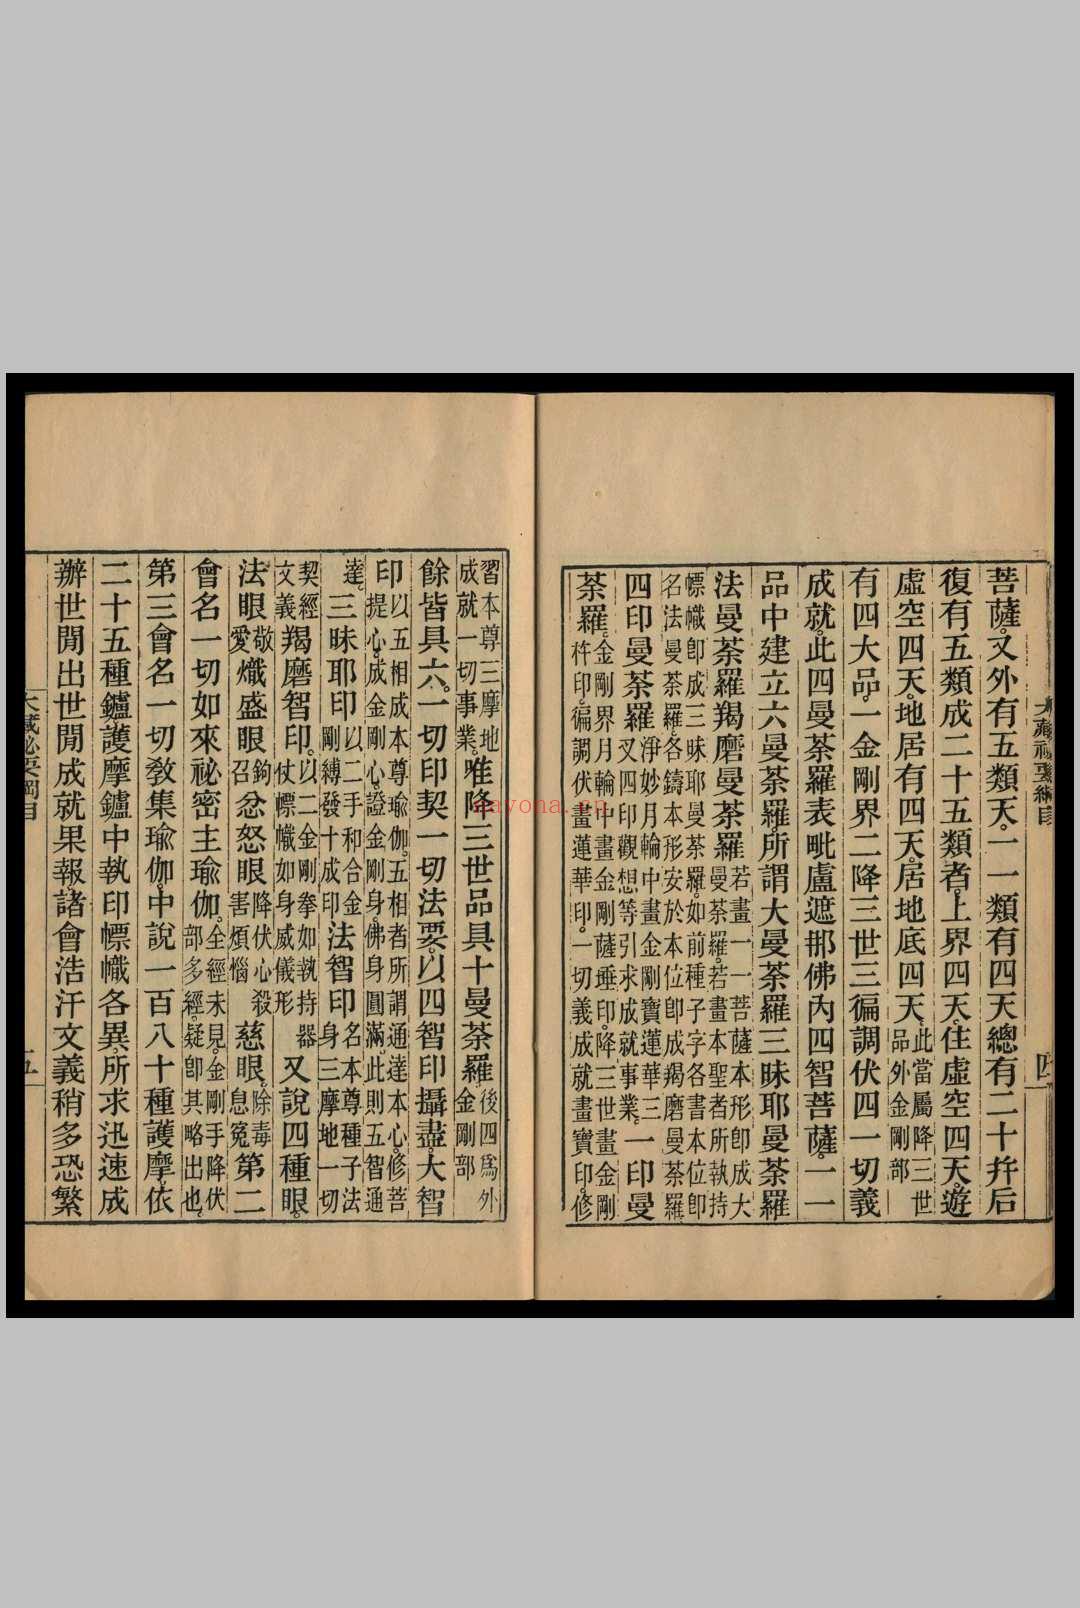 大藏祕要綱目
四
菩薩。又外有五類天。一一類有四天總有二十幷后
復有五類成二十五類者。上界四天。住虛空四天。遊
虛空四天。地居有四天。居地底四天。此當屬降三世品外金剛部
有四大品。一金剛界二降三世三徧調伏四一切義
成就。此四曼荼羅表毗盧遮那佛內四智菩薩。一一
品中建立六曼荼羅。所謂大曼荼羅三昧耶曼荼羅
法曼荼羅羯磨曼荼羅若畫一一菩薩本形卽成大曼荼羅。若畫本聖者所執持
幖幟卽成三昧耶曼荼羅。如前種子字各書本位卽名法曼荼羅。各鑄本形安於本位卽成羯磨曼荼羅
四印曼荼羅淨妙月輪中畫金剛寶蓮華三叉四印觀想等引求成就事業。一印曼
荼羅。金剛界月輪中畫金剛薩埵印。降三世畫金剛杵印。徧調伏畫蓮華印。一切義成就畫寶印。修
習本尊三摩地成就一切事業。唯降三世品具十曼荼羅後四爲外金剛部
餘皆具六。一切印契一切法要。以四智印攝盡。大智
印以五相成本尊瑜伽。五相者所謂通達本心。修菩提心。成金剛心。證金剛身。佛身圓滿。此則五智通
達。三昧耶印以二手和合金剛縛發十成印法智印名本尊種子法身三摩地一切
契經文義羯磨智印。以二金剛拳如執持器仗幖幟如身威儀形又說四種眼。
法眼敬愛熾盛眼鉤召忿怒眼降伏心殺害煩惱慈眼。除毒息冤第二
會名一切如來祕密主瑜伽。全經未見。金剛手降伏部多經。疑卽其略出也。
第三會名一切敎集瑜伽。中說一百八十種護摩。依
二十五種鑪護摩鑪中執印幖幟各異。所求迅速成
辦世閒出世閒成就果報。諸會浩汗文義稍多恐繁
大藏祕要綱目
五
nayona.cn